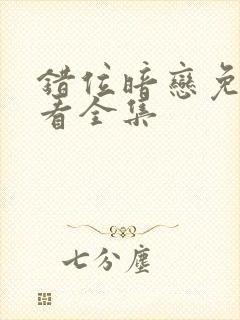 错位暗戀免
看全集
七分塵